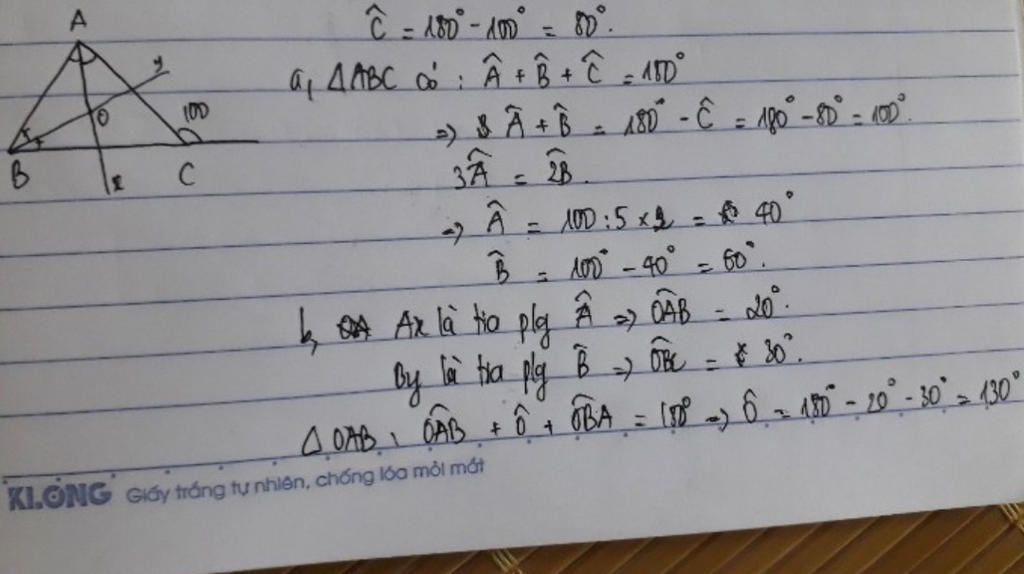 A
y
O
100
B
C
x
Ĉ = 180° - 100° = 80°.
a, ΔABC có : Â + B̂ + Ĉ = 180°
=> Â + B̂ = 180° - Ĉ = 180° - 80° = 100°.
3Â = 2B̂.
=> Â = 100 : 5 x 2 = 40°
B̂ = 100° - 40° = 60°.
b, Ax là tia plg Â => OÂB = 20°.
By là tia plg B̂ => OB̂C = 30°.
Δ OAB : OÂB + Ô + OB̂A = 180° => Ô = 180° - 20° - 30° = 130°
KLONG Giấy trắng tự nhiên, chống lóa mỏi mắt